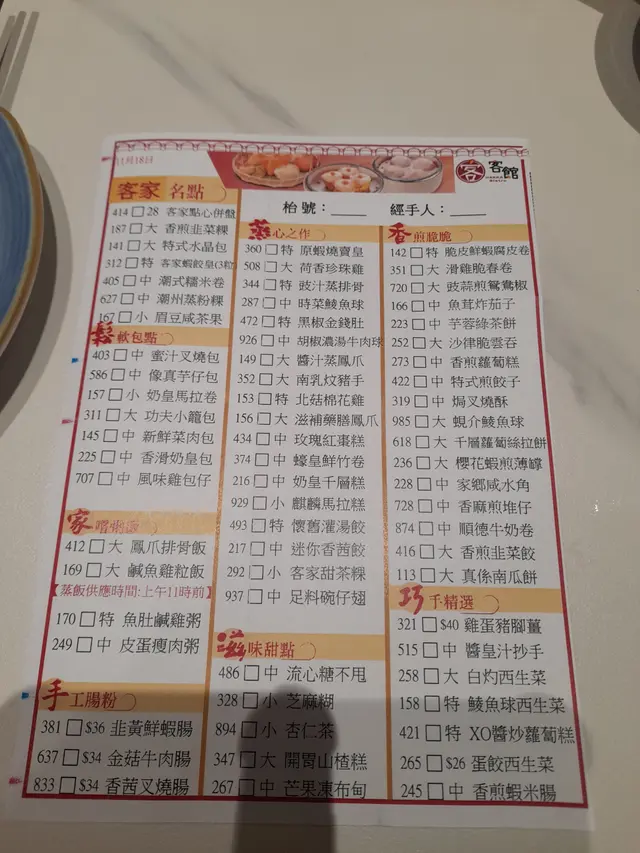 11月18日
客 客館
枱號：____ 經手人：____
客家名點
414 □ 28 客家點心併盤
187 □ 大 香煎韭菜粿
141 □ 大 特式水晶包
312 □ 特 客家蝦餃皇(3粒
405 □ 中 潮式糯米卷
627 □ 中 潮州蒸粉粿
167 □ 小 眉豆咸茶果
鬆軟包點
403 □ 中 蜜汁叉燒包
586 □ 中 像真芋仔包
157 □ 小 奶皇馬拉卷
311 □ 大 功夫小籠包
145 □ 中 新鮮菜肉包
225 □ 中 香滑奶皇包
707 □ 中 風味雞包仔
家嚐粥飯
412 □ 大 鳳爪排骨飯
169 □ 大 鹹魚雞粒飯
【蒸飯供應時間:上午11時前】
170 □ 特 魚肚鹹雞粥
249 □ 中 皮蛋瘦肉粥
手工腸粉
381 □ $36 韭黃鮮蝦腸
637 □ $34 金菇牛肉腸
833 □ $34 香茜叉燒腸
蒸心之作
360 □ 特 原蝦燒賣皇
508 □ 大 荷香珍珠雞
344 □ 特 豉汁蒸排骨
287 □ 中 時菜鯪魚球
472 □ 特 黑椒金錢肚
926 □ 中 胡椒濃湯牛肉球
149 □ 大 醬汁蒸鳳爪
352 □ 大 南乳炆豬手
153 □ 特 北菇棉花雞
156 □ 大 滋補藥膳鳳爪
434 □ 中 玫瑰紅棗糕
374 □ 中 蠔皇鮮竹卷
216 □ 中 奶皇千層糕
929 □ 小 麒麟馬拉糕
493 □ 特 懷舊灌湯餃
217 □ 中 迷你香茜餃
292 □ 小 客家甜茶粿
937 □ 中 足料碗仔翅
滋味甜點
486 □ 中 流心糖不甩
328 □ 小 芝麻糊
894 □ 小 杏仁茶
347 □ 大 開胃山楂糕
267 □ 中 芒果凍布甸
香煎脆脆
142 □ 特 脆皮鮮蝦腐皮卷
351 □ 大 滑雞脆春卷
720 □ 大 豉蒜煎鴛鴦椒
166 □ 中 魚茸炸茄子
223 □ 中 芋蓉綠茶餅
252 □ 大 沙律脆雲吞
273 □ 中 香煎蘿蔔糕
422 □ 中 特式煎餃子
319 □ 中 焗叉燒酥
985 □ 大 蜆介鯪魚球
618 □ 大 千層蘿蔔絲拉餅
236 □ 大 櫻花蝦煎薄罉
228 □ 中 家鄉咸水角
728 □ 中 香麻煎堆仔
874 □ 中 順德牛奶卷
416 □ 大 香煎韭菜餃
113 □ 大 真係南瓜餅
巧手精選
321 □ $40 雞蛋豬腳薑
515 □ 中 醬皇汁抄手
258 □ 大 白灼西生菜
158 □ 特 鯪魚球西生菜
421 □ 特 XO醬炒蘿蔔糕
265 □ $26 蛋餃西生菜
245 □ 中 香煎蝦米腸